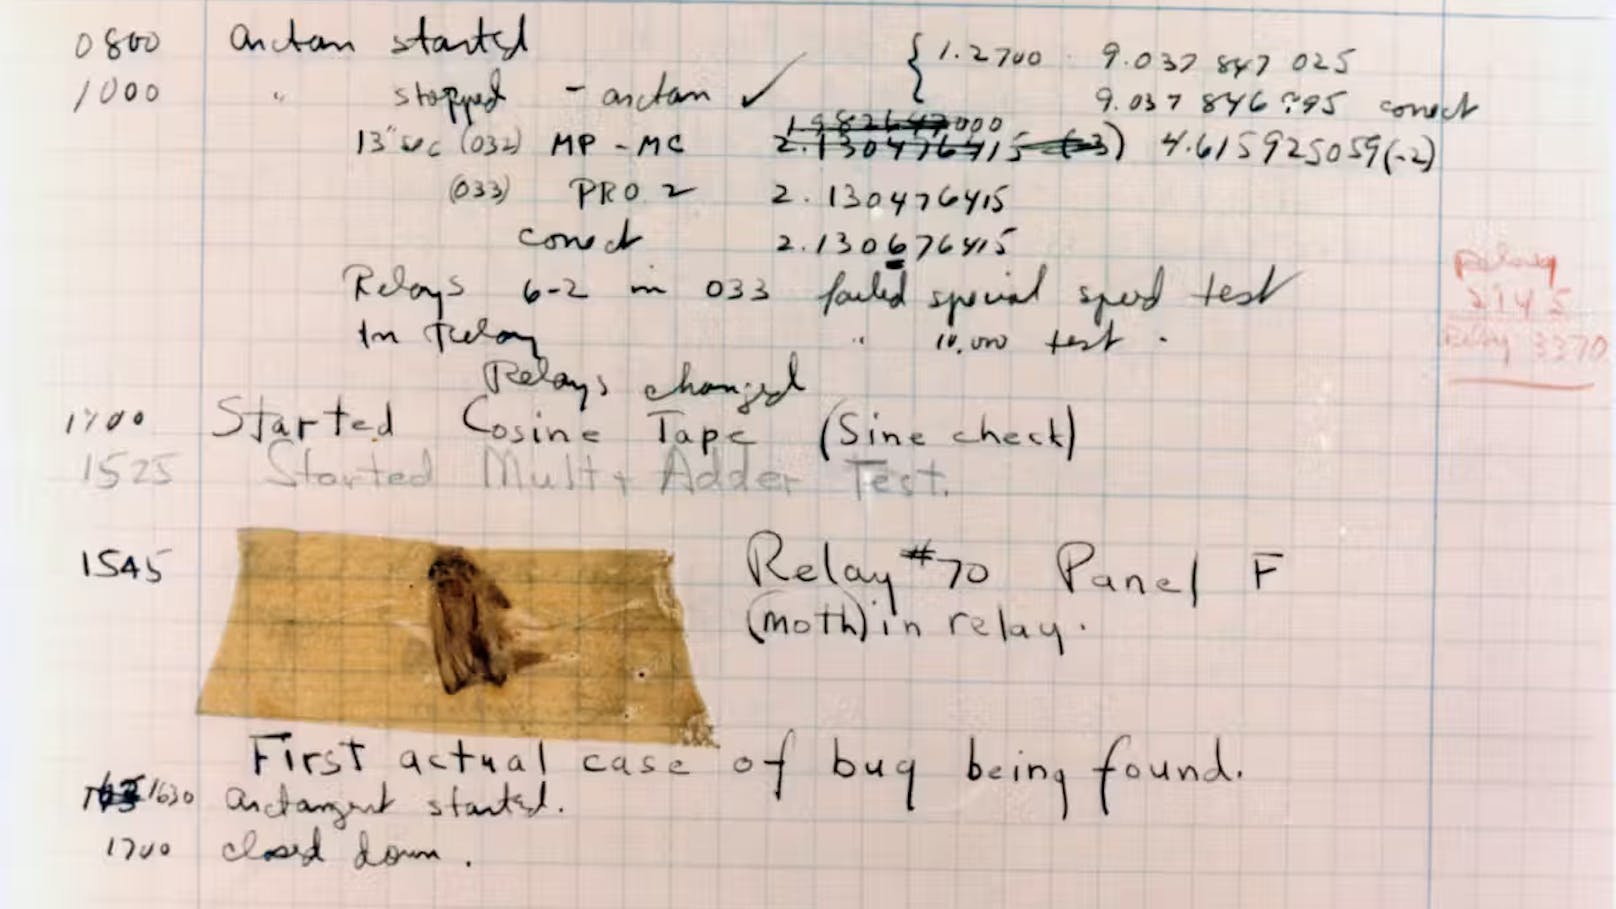 0800 arctan started
1000 " stopped - arctan ✓
{ 1.2700 9.037 847 025
9.037 846 995 correct
1.982647000
13" sec (032) MP - MC 2.130476415 (-3) 4.615925059(-2)
(033) PRO 2 2.130476415
correct 2.130676415
Relays 6-2 in 033 failed special speed test
In Relay " 10,000 test .
Relay
2145
Relay 3370
Relays changed
1700 Started Cosine Tape (Sine check)
1525 Started Mult + Adder Test.
1545 Relay #70 Panel F
(moth) in relay.
First actual case of bug being found.
1630 arctangent started.
1700 closed down.